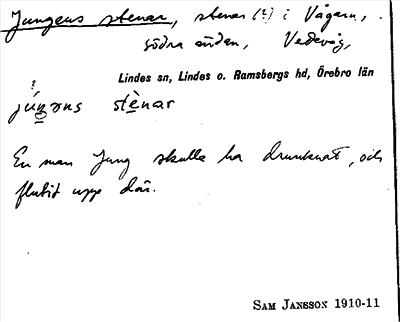 Jungens stenar, stenar (?) i Vågarn,
södra ändan, Vedevåg,
Lindes sn, Lindes o. Ramsbergs hd, Örebro län
?
júŋəns stènar
En man Jung skulle ha drunknat, och
flutit upp där.
SAM JANSSON 1910-11